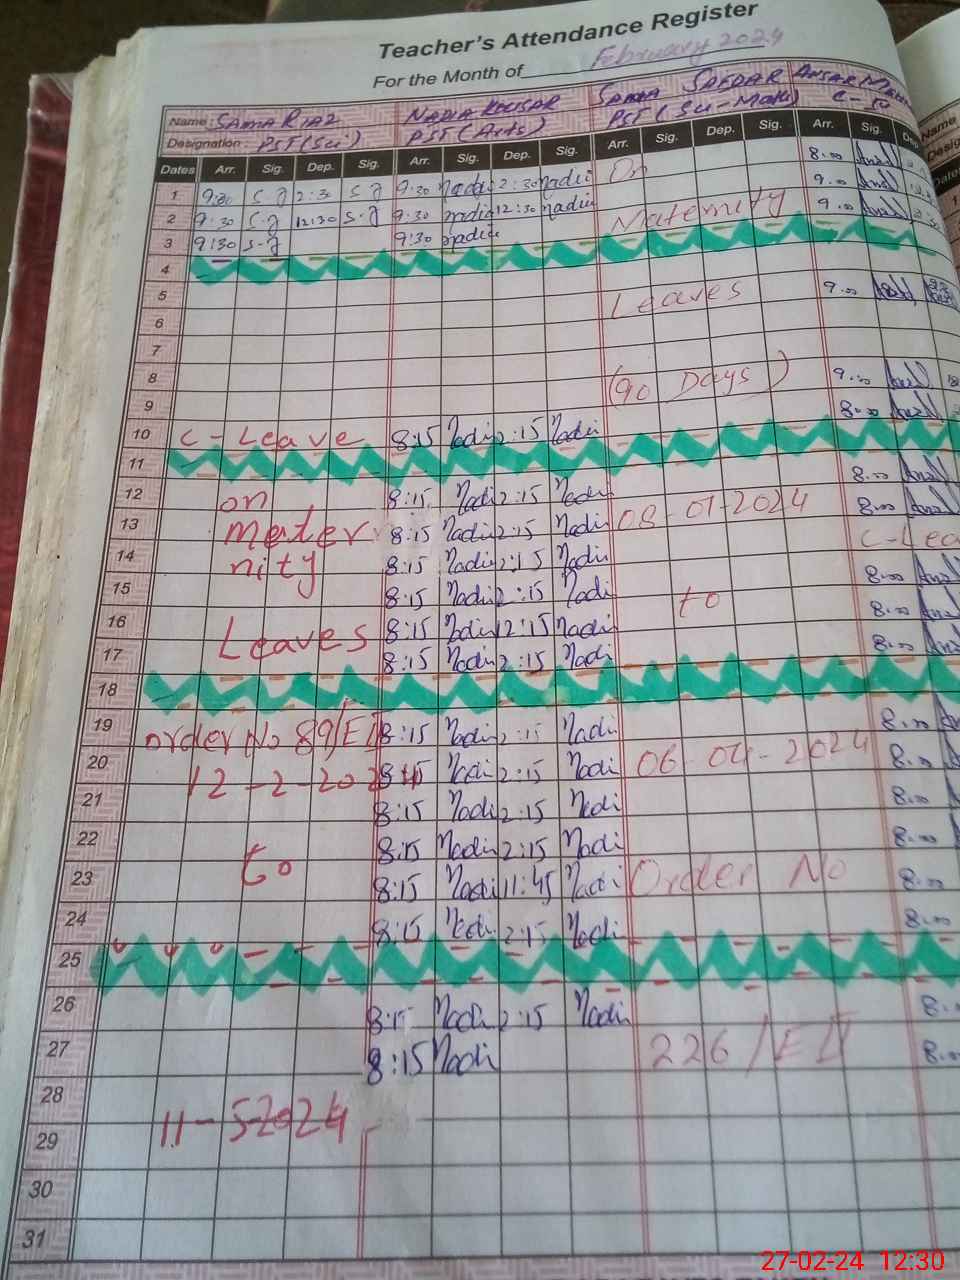 Teacher's Attendance Register
For the Month of February 2024
Name SAMA RIAZ NADIA KOUSAR SAMIA SAFDAR ANSAR
Designation PST (Sci) PST (Arts) PST (Sci-Math)
Dates Arr. Sig. Dep. Sig. Arr. Sig. Dep. Sig. Arr. Sig. Dep. Sig. Arr. Sig. Dep
1 9:30 S-J 2:30 S-J 9:30 Nadi 2:30 Nadi On 8.00
2 9:30 S-J 12:30 S-J 9:30 Nadi 12:30 Nadi Maternity 9.00
3 9:30 S-J 9:30 Nadi 9.00
4
5 Leaves 9.00
6
7
8 (90 Days) 9.00
9 8.00
10 C-Leave 8:15 Nadi 2:15 Nadi
11
12 on 8:15 Nadi 2:15 Nadi 8.00
13 mater 8:15 Nadi 2:15 Nadi 08-01-2024 8.00
14 nity 8:15 Nadi 2:15 Nadi C-Lea
15 8:15 Nadi 2:15 Nadi 8.00
16 Leaves 8:15 Nadi 12:15 Nadi to 8.00
17 8:15 Nadi 2:15 Nadi 8.00
18
19 order No 89/EI 8:15 Nadi 2:15 Nadi 8.00
20 12-2-2024 8:15 Nadi 2:15 Nadi 06-04-2024 8.00
21 8:15 Nadi 2:15 Nadi 8.00
22 8:15 Nadi 2:15 Nadi 8.00
23 to 8:15 Nadi 11:45 Nadi Order No 8.00
24 8:15 Nadi 2:15 Nadi 8.00
25
26 8:15 Nadi 2:15 Nadi 8.0
27 8:15 Nadi 226/EI 8.0
28
29 11-5-2024
30
31
Name
Desig
Date
27-02-24 12:30